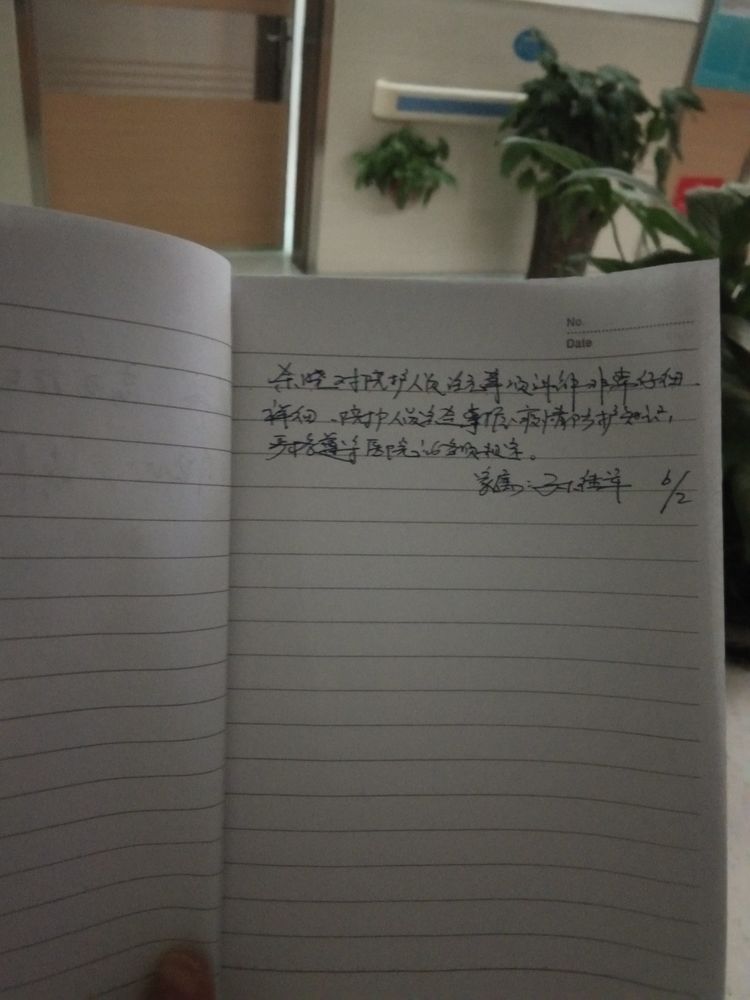 No.
Date
对陪护人员注意事项讲解非常仔细
详细、陪护人员注意事项、疫情防护知识,
严格遵守医院的各项规定。
家属: 6/2